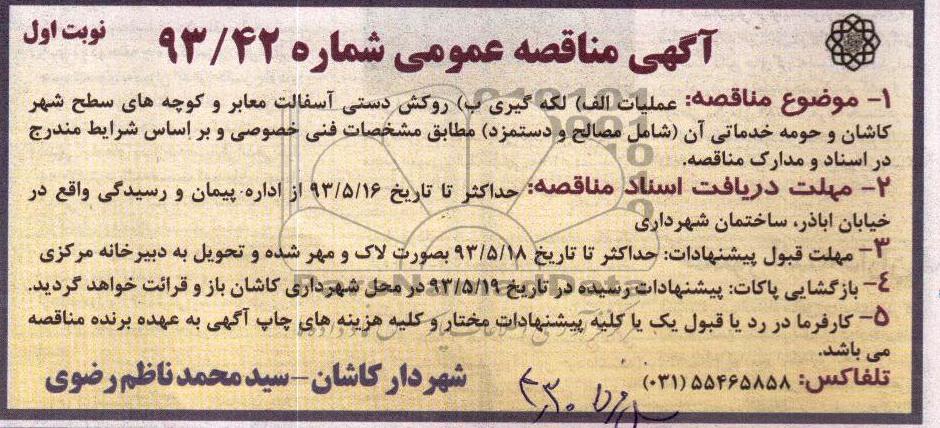 آگهی مناقصه عمومی شماره ۹۳/۴۲
نوبت اول
۱- موضوع مناقصه: عملیات الف) لکه گیری ب) روکش دستی آسفالت معابر و کوچه های سطح شهر
کاشان و حومه خدماتی آن (شامل مصالح و دستمزد) مطابق مشخصات فنی خصوصی و بر اساس شرایط مندرج
در اسناد و مدارک مناقصه.
۲- مهلت دریافت اسناد مناقصه: حداکثر تا تاریخ ۹۳/۵/۱۶ از اداره پیمان و رسیدگی واقع در
خیابان اباذر، ساختمان شهرداری
۳- مهلت قبول پیشنهادات: حداکثر تا تاریخ ۹۳/۵/۱۸ بصورت لاک و مهر شده و تحویل به دبیرخانه مرکزی
۴- بازگشایی پاکات: پیشنهادات رسیده در تاریخ ۹۳/۵/۱۹ در محل شهرداری کاشان باز و قرائت خواهد گردید.
۵- کارفرما در رد یا قبول یک یا کلیه پیشنهادات مختار و کلیه هزینه های چاپ آگهی به عهده برنده مناقصه
می باشد.
تلفاکس: ۵۵۴۶۵۸۵۸ (۰۳۱)
شهردار کاشان - سید محمد ناظم رضوی